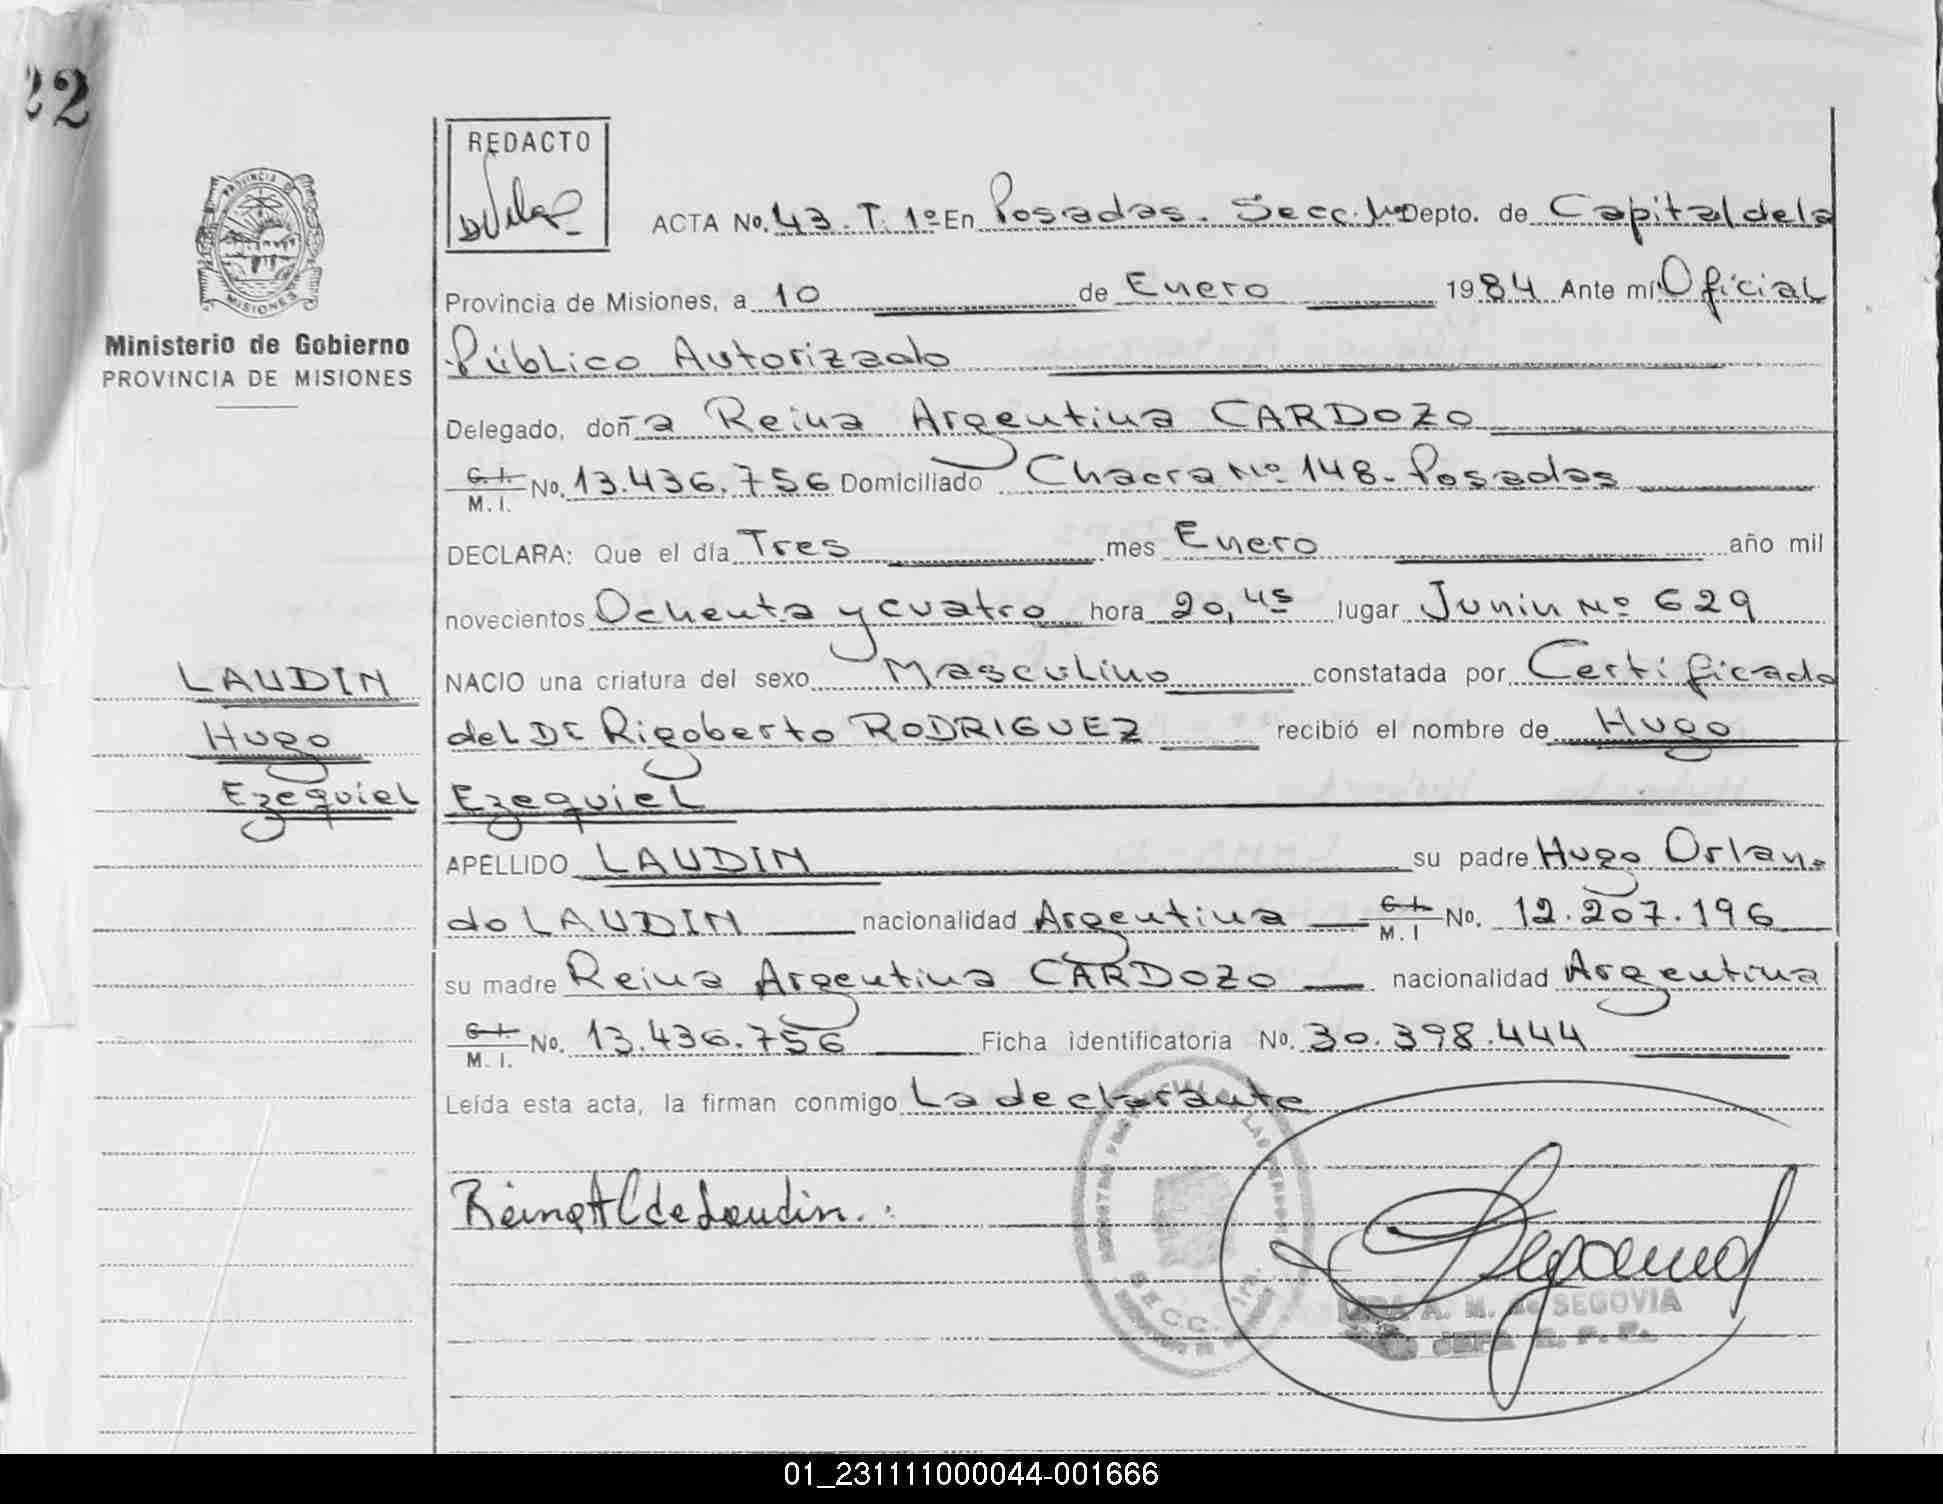 22
REDACTO
PROVINCIA DE
MISIONES
Ministerio de Gobierno
PROVINCIA DE MISIONES
ACTA No. 43. T. 1º En Posadas. Secc. 1ra Depto. de Capital de la
Provincia de Misiones, a 10 de Enero 1984 Ante mí Oficial
Público Autorizado
Delegado, doña Reina Argentina CARDOZO
C. I. / M. I. No. 13.436.756 Domiciliado Chacra Nº 148 - Posadas
DECLARA: Que el día Tres mes Enero año mil
novecientos Ochenta y cuatro hora 20,45 lugar Junin Nº 629
NACIO una criatura del sexo Masculino constatada por Certificado
del Dr Rigoberto RODRIGUEZ recibió el nombre de Hugo
Ezequiel
LAUDIN
Hugo
Ezequiel
APELLIDO LAUDIN su padre Hugo Orlan-
do LAUDIN nacionalidad Argentina C. I. / M. I No. 12.207.196
su madre Reina Argentina CARDOZO nacionalidad Argentina
C. I. / M. I. No. 13.436.756 Ficha identificatoria No. 30.398.444
Leída esta acta, la firman conmigo La declarante
Reina A C de Laudin.
SECC. 1ra.
A. M. de SEGOVIA
JEFA R. P. P.
01_231111000044-001666